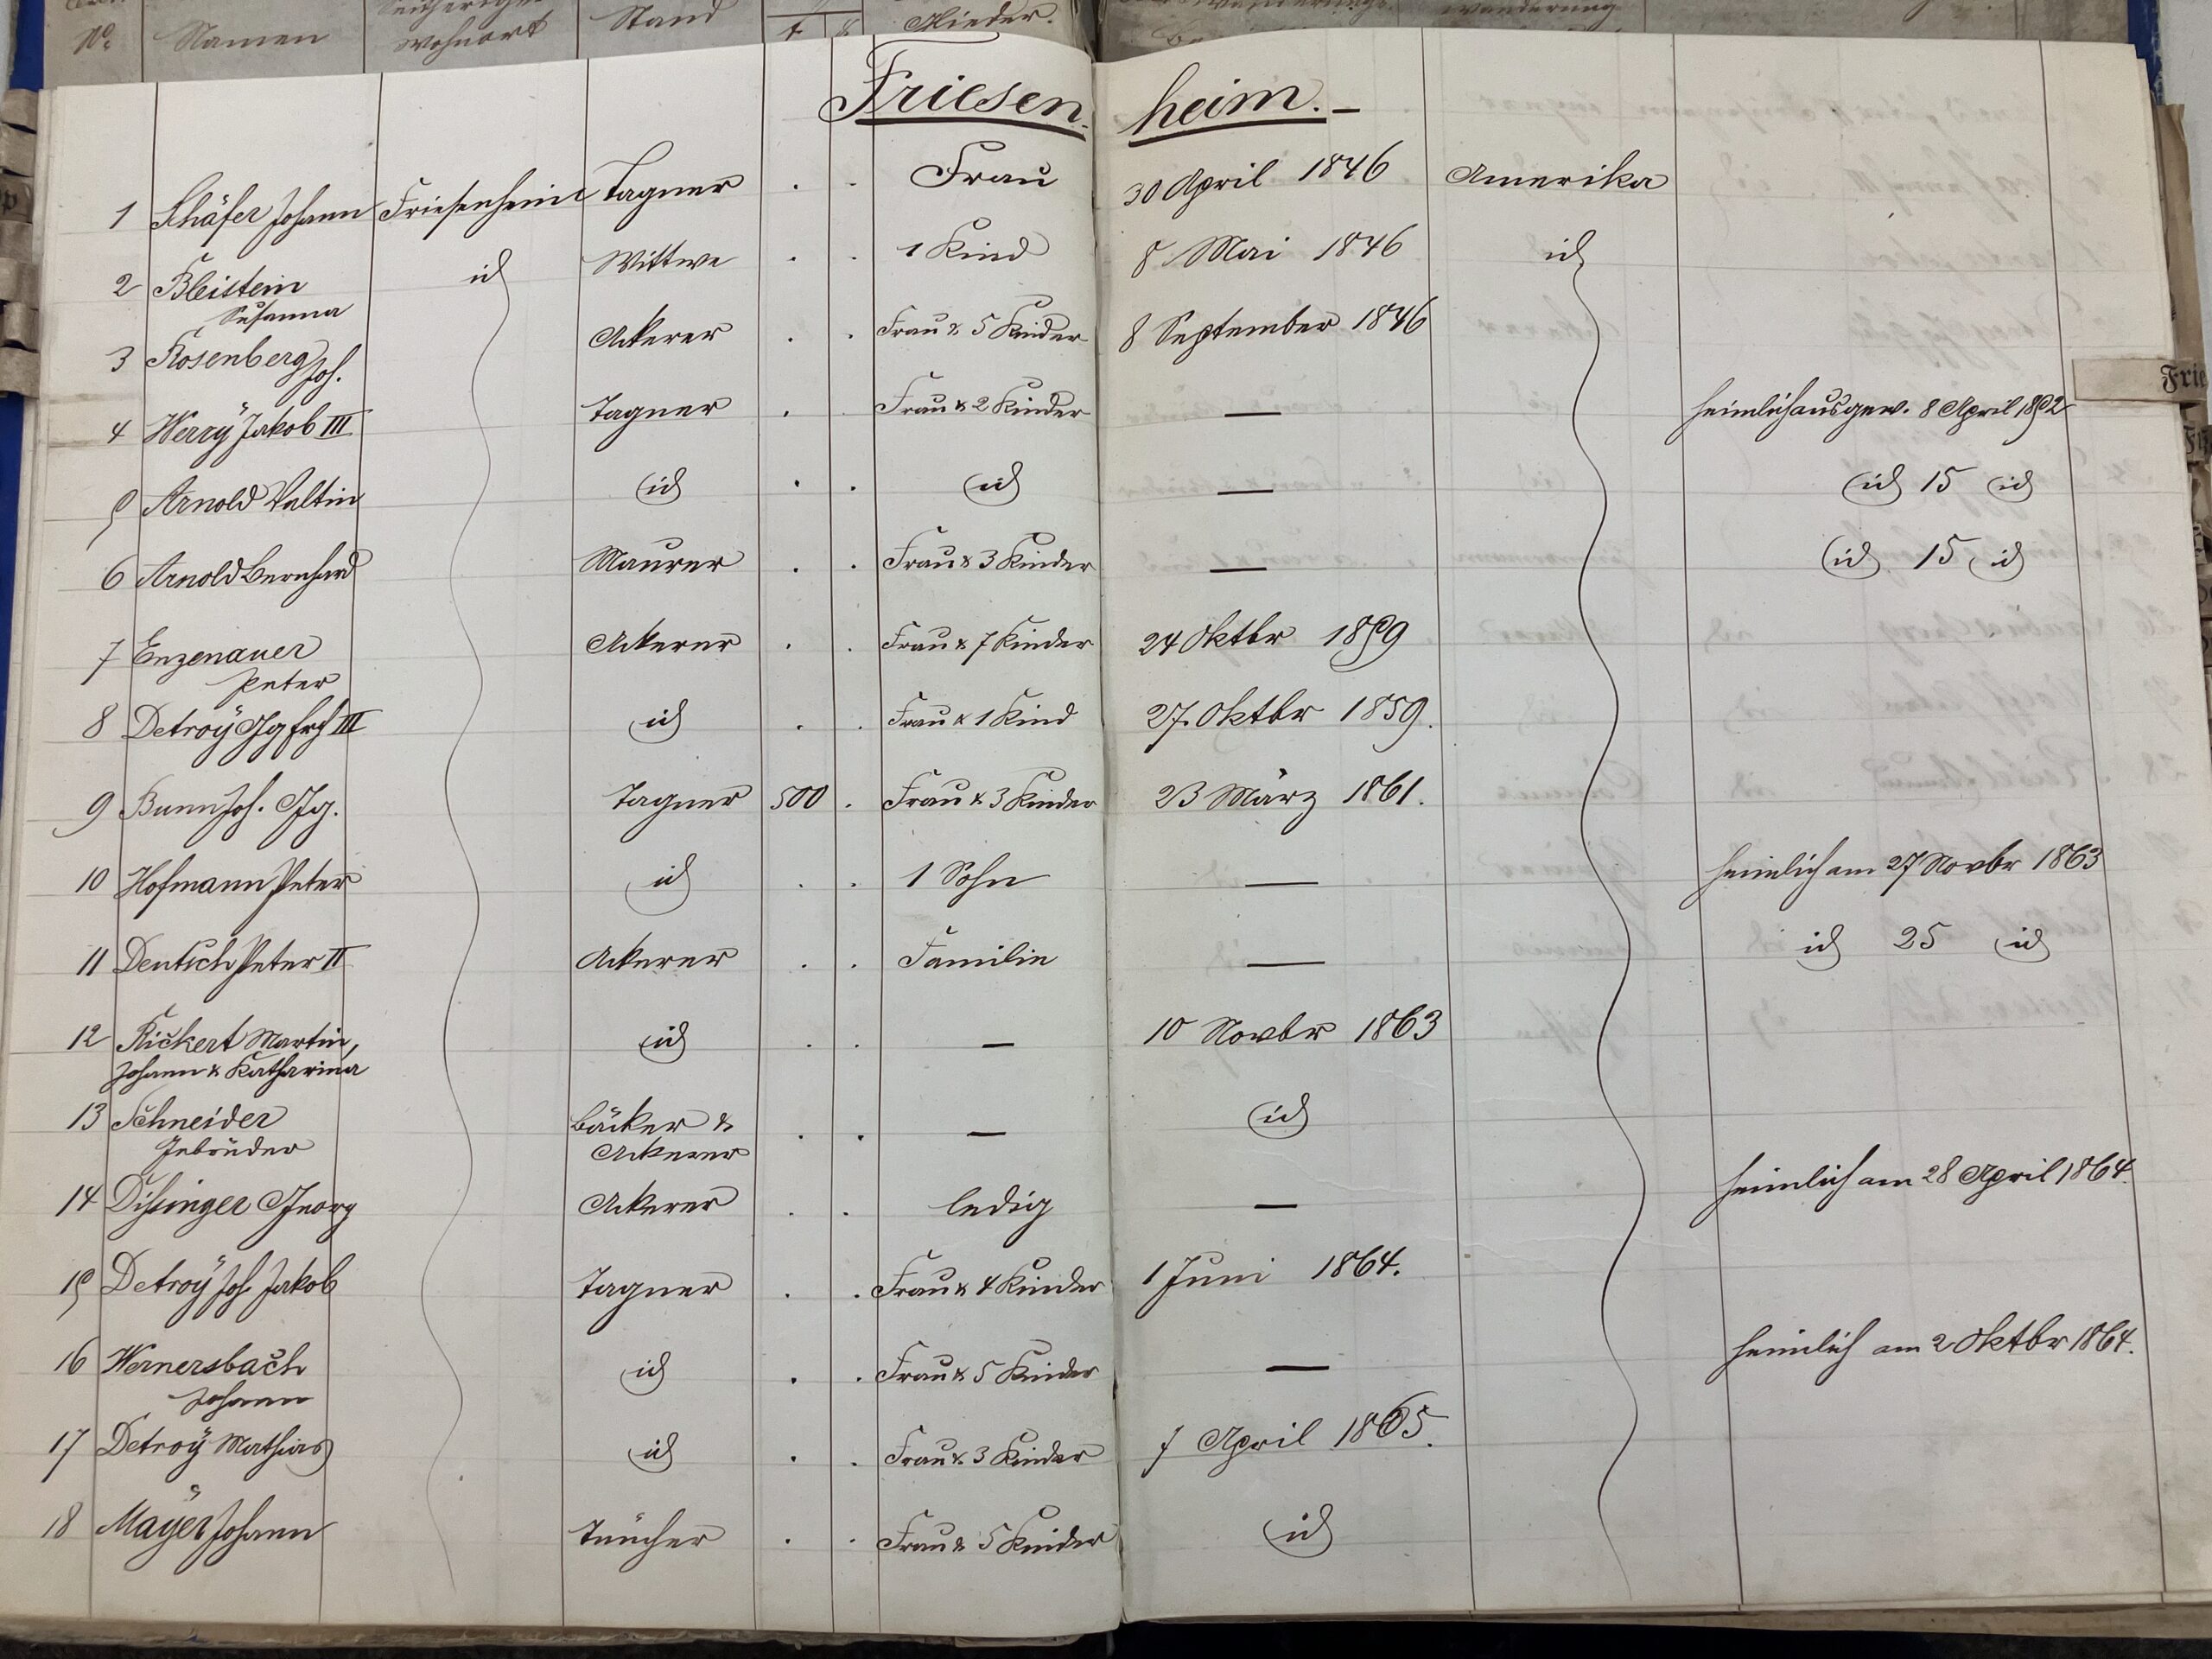 No. Namen Wohnort Stand f Glieder.
Friesenheim. —
1 Schäfer Johann Friesenheim Tagner . . Frau 30 April 1846 Amerika
2 Bleistein id Wittwe . . 1 Kind 8 Mai 1846 id
Susanna
3 Rosenberg Ackerer . . Frau & 5 Kinder 8 September 1846
Joh.
4 Werrÿ Jakob III Tagner . . Frau & 2 Kinder — heimlich ausgew. 8 April 1852
5 Arnold Valtin id . . id — id 15 id
6 Arnold Bernhard Maurer . . Frau & 3 Kinder — id 15 id
7 Enzenauer Ackerer . . Frau & 7 Kinder 24 Oktbr 1859
Peter
8 Detroÿ Gg frch III id . . Frau & 1 Kind 27. Oktbr 1859.
9 Bunn Joh. Gg. Tagner 500 . Frau & 3 Kinder 23 März 1861.
10 Hofmann Peter id . . 1 Sohn — heimlich am 27 Novbr 1863
11 Deutsch Peter II Ackerer . . Familie — id 25 id
12 Rickert Martin, id . . — 10 Novbr 1863
Johann & Katharina
13 Schneider Bäcker & . . — id
Gebrüder Ackerer
14 Dissinger Georg Ackerer . . ledig — heimlich am 28 April 1864.
15 Detroÿ Joh. Jakob Tagner . . Frau & 4 Kinder 1 Juni 1864.
16 Wernersbach id . . Frau & 5 Kinder — heimlich am 2 Oktbr 1864.
Johann
17 Detroÿ Mathias id . . Frau & 3 Kinder 7 April 1865.
18 Maÿer Johann Tüncher . . Frau & 5 Kinder id